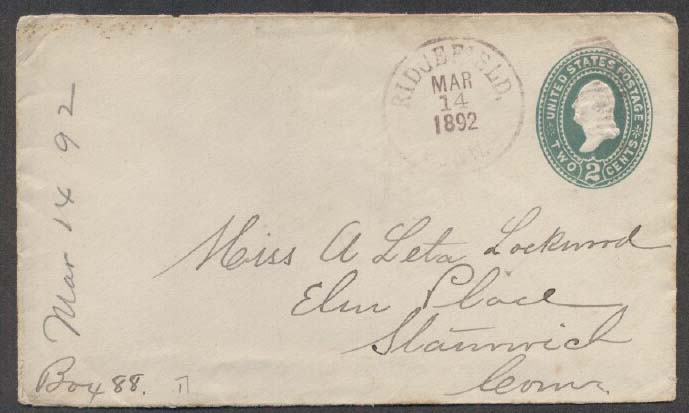 RIDJEFIELD,
MAR
14
1892
CONN.
UNITED STATES POSTAGE
TWO 2 CENTS
Miss A Leta Lockwood
Elm Place
Stanwich
Conn
Mar 14 92
Box 88.